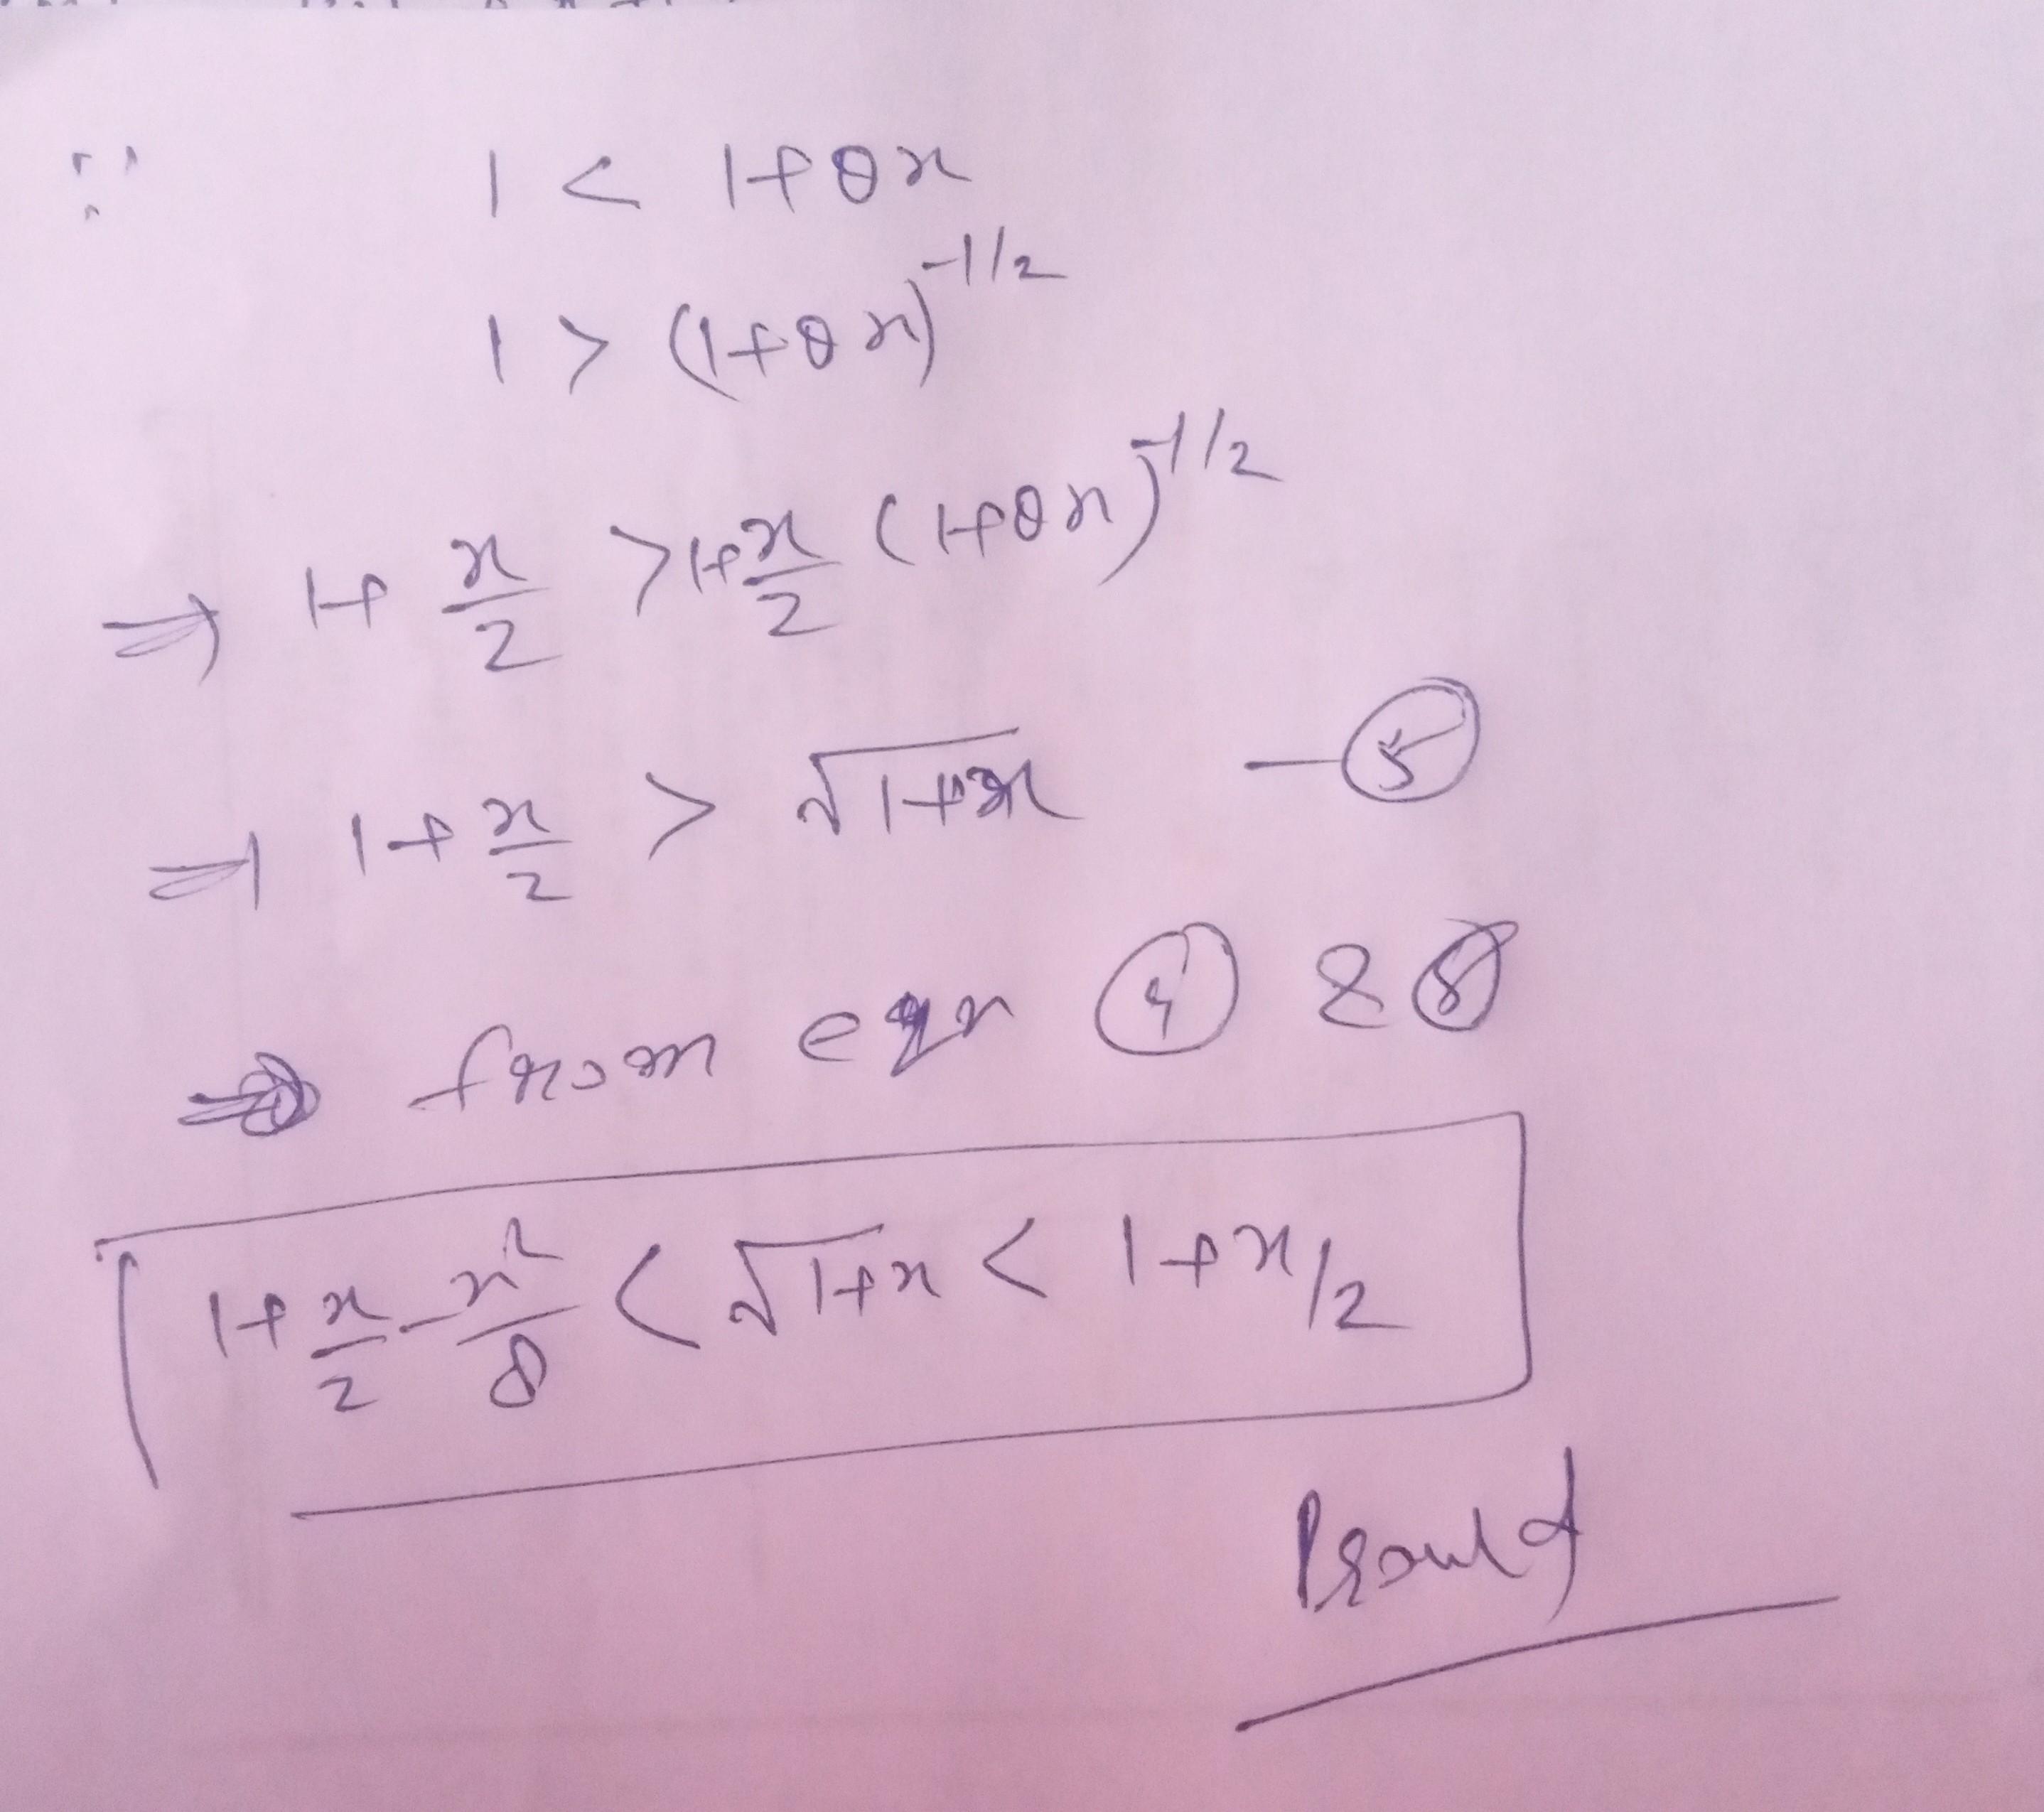 ∵ 1 < 1+θx
1 > (1+θx)^{-1/2}
⇒ 1+ x/2 > 1+ x/2 (1+θx)^{-1/2}
⇒ 1+ x/2 > √1+x — ⑤
⇒ from eqn ④ & ⑤
1+ x/2 - x²/8 < √1+x < 1+x/2
Prould